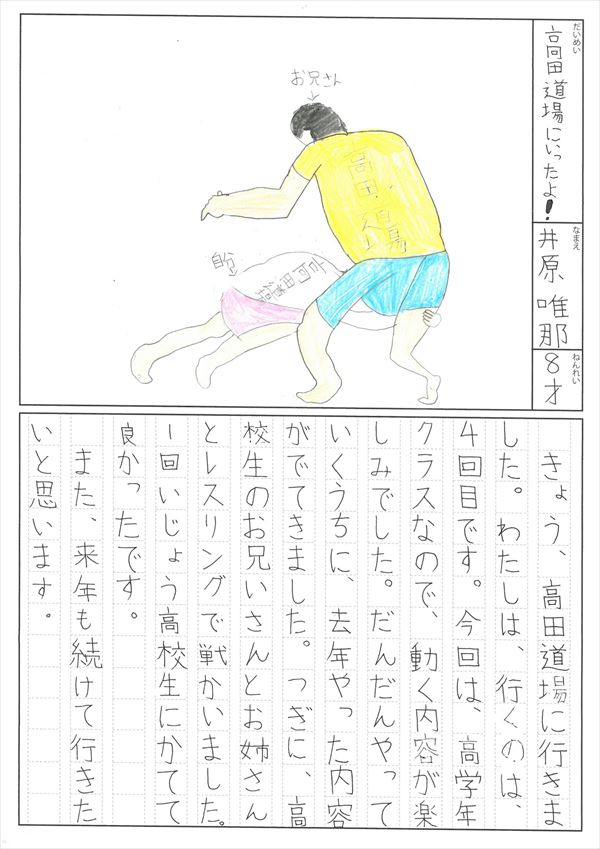 だいめい
高田道場にいったよ!
なまえ
井原唯那
ねんれい
8才
お兄さん
高田道場
自分
高田道場
きょう、高田道場に行きま
した。わたしは、行くのは、
4回目です。今回は、高学年
クラスなので、動く内容が楽
しみでした。だんだんやって
いくうちに、去年やった内容
がでてきました。つぎに、高
校生のお兄いさんとお姉さん
とレスリングで戦かいました。
一回いじょう高校生にかてて
良かったです。
また、来年も続けて行きた
いと思います。